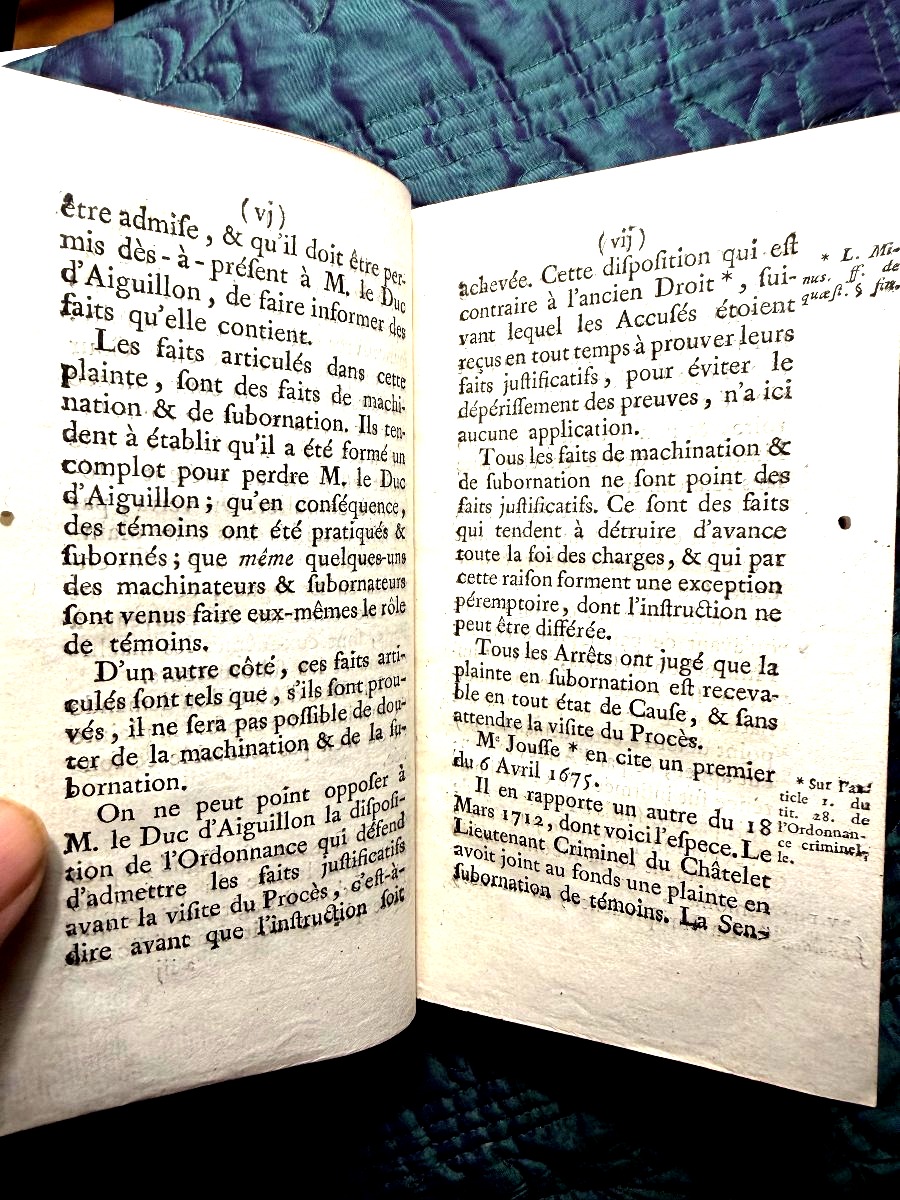 (vj)
être admiſe, & qu'il doit être per-
mis dès-à-préſent à M. le Duc
d'Aiguillon, de faire informer des
faits qu'elle contient.
Les faits articulés dans cette
plainte, ſont des faits de machi-
nation & de ſubornation. Ils ten-
dent à établir qu'il a été formé un
complot pour perdre M. le Duc
d'Aiguillon; qu'en conſéquence,
des témoins ont été pratiqués &
ſubornés; que même quelques-uns
des machinateurs & ſubornateurs
ſont venus faire eux-mêmes le rôle
de témoins.
D'un autre côté, ces faits arti-
culés ſont tels que, s'ils ſont prou-
vés, il ne ſera pas poſſible de dou-
ter de la machination & de la ſu-
bornation.
On ne peut point oppoſer à
M. le Duc d'Aiguillon la diſpoſi-
tion de l'Ordonnance qui défend
d'admettre les faits juſtificatifs
avant la viſite du Procès, c'eſt-à-
dire avant que l'inſtruction ſoit
(vij)
achevée. Cette diſpoſition qui eſt
contraire à l'ancien Droit *, ſui-
vant lequel les Accuſés étoient
reçus en tout temps à prouver leurs
faits juſtificatifs, pour éviter le
dépériſſement des preuves, n'a ici
aucune application.
Tous les faits de machination &
de ſubornation ne ſont point des
faits juſtificatifs. Ce ſont des faits
qui tendent à détruire d'avance
toute la foi des charges, & qui par
cette raiſon forment une exception
péremptoire, dont l'inſtruction ne
peut être différée.
Tous les Arrêts ont jugé que la
plainte en ſubornation eſt receva-
ble en tout état de Cauſe, & ſans
attendre la viſite du Procès.
Me Jouſſe * en cite un premier
du 6 Avril 1675.
Il en rapporte un autre du 18
Mars 1712, dont voici l'eſpece. Le
Lieutenant Criminel du Châtelet
avoit joint au fonds une plainte en
ſubornation de témoins. La Sen-
* L. Mi-
nus. ff. de
quæſt. § fin.
* Sur l'ar-
ticle 1. du
tit. 28. de
l'Ordonnan-
ce criminel-
le.